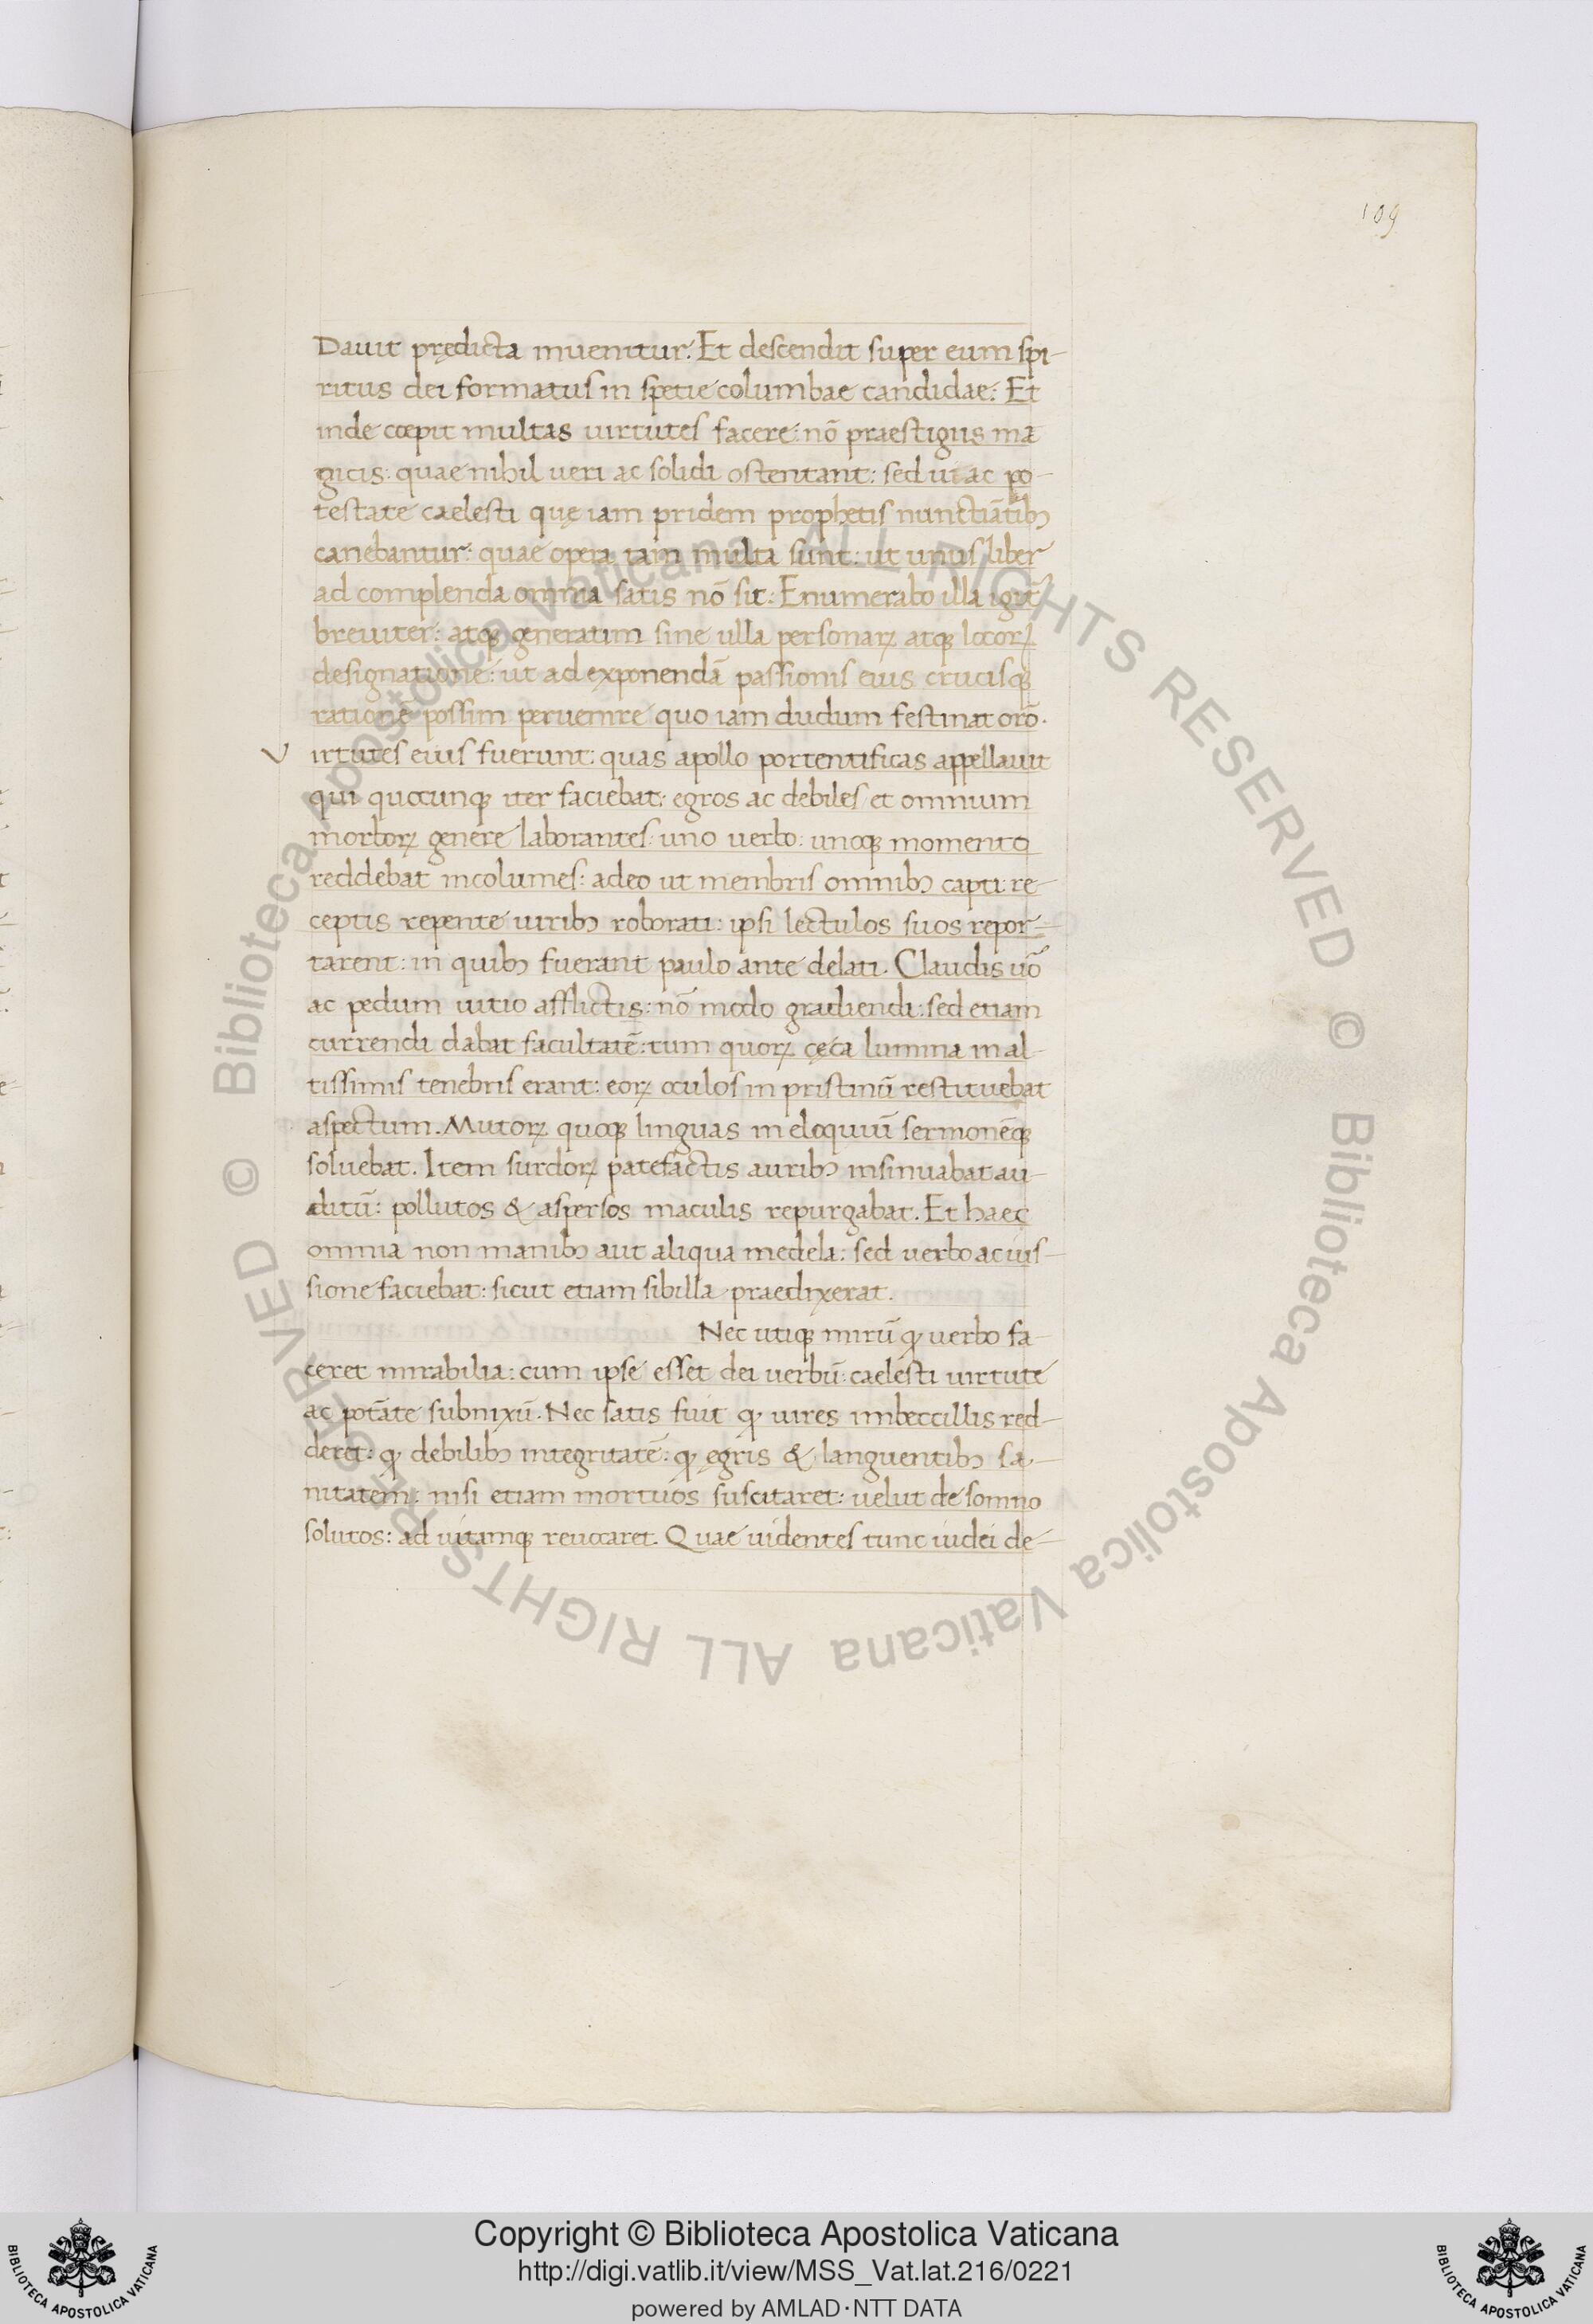 109
Dauit prędicta inuenitur. Et descendit super eum spi-
ritus dei formatus in spetie columbae candidae: Et
inde coepit multas uirtutes facere: nō praestigiis ma
gicis: quae nihil ueri ac solidi ostentant: sed ui ac po-
testate caelesti quę iam pridem prophetis nunctiātibꝫ
canebantur: quae opera tam multa sunt: ut unus liber
ad complenda omnia satis nō sit: Enumerabo illa igit̄
breuiter: atqꝫ generatim sine ulla personaꝝ atqꝫ locoꝝ
designatione: ut ad exponendā passionis eius crucisqꝫ
rationē possim peruenire quo iam dudum festinat orō.
V irtutes eius fuerunt: quas apollo portentificas appellauit
qui quocunqꝫ iter faciebat: egros ac debiles et omnium
morboꝝ genere laborantes: uno uerbo: unoqꝫ momento
reddebat incolumes: adeo ut membris omnibꝫ capti: re-
ceptis repente uiribꝫ roborati: ipsi lectulos suos repor-
tarent: in quibꝫ fuerant paulo ante delati. Claudis uō
ac pedum uitio afflictis: nō modo gradiendi: sed etiam
currendi dabat facultatē: tum quoꝝ cęca lumina in al-
tissimis tenebris erant: eoꝝ oculos in pristinū restituebat
aspectum. Mutoꝝ quoqꝫ linguas in eloquiū sermonēqꝫ
soluebat. Item surdoꝝ patefactis auribꝫ insinuabat au-
ditū: pollutos & aspersos maculis repurgabat. Et haec
omnia non manibꝫ aut aliqua medela: sed uerbo ac ius-
sione faciebat: sicut etiam sibilla praedixerat.
Nec utiqꝫ mirū ꝙ uerbo fa-
ceret mirabilia: cum ipse esset dei uerbū: caelesti uirtute
ac potāte subnixū. Nec satis fuit ꝙ uires imbeccillis red-
deret: ꝙ debilibꝫ integritatē: ꝙ ęgris & languentibꝫ sa-
nitatem: nisi etiam mortuos suscitaret: uelut de somno
solutos: ad uitamqꝫ reuocaret. Quae uidentes tunc iudei de-
© Biblioteca Apostolica Vaticana ALL RIGHTS RESERVED © Biblioteca Apostolica Vaticana ALL RIGHTS RESERVED
Copyright © Biblioteca Apostolica Vaticana
http://digi.vatlib.it/view/MSS_Vat.lat.216/0221
powered by AMLAD·NTT DATA
BIBLIOTECA APOSTOLICA VATICANA
BIBLIOTECA APOSTOLICA VATICANA